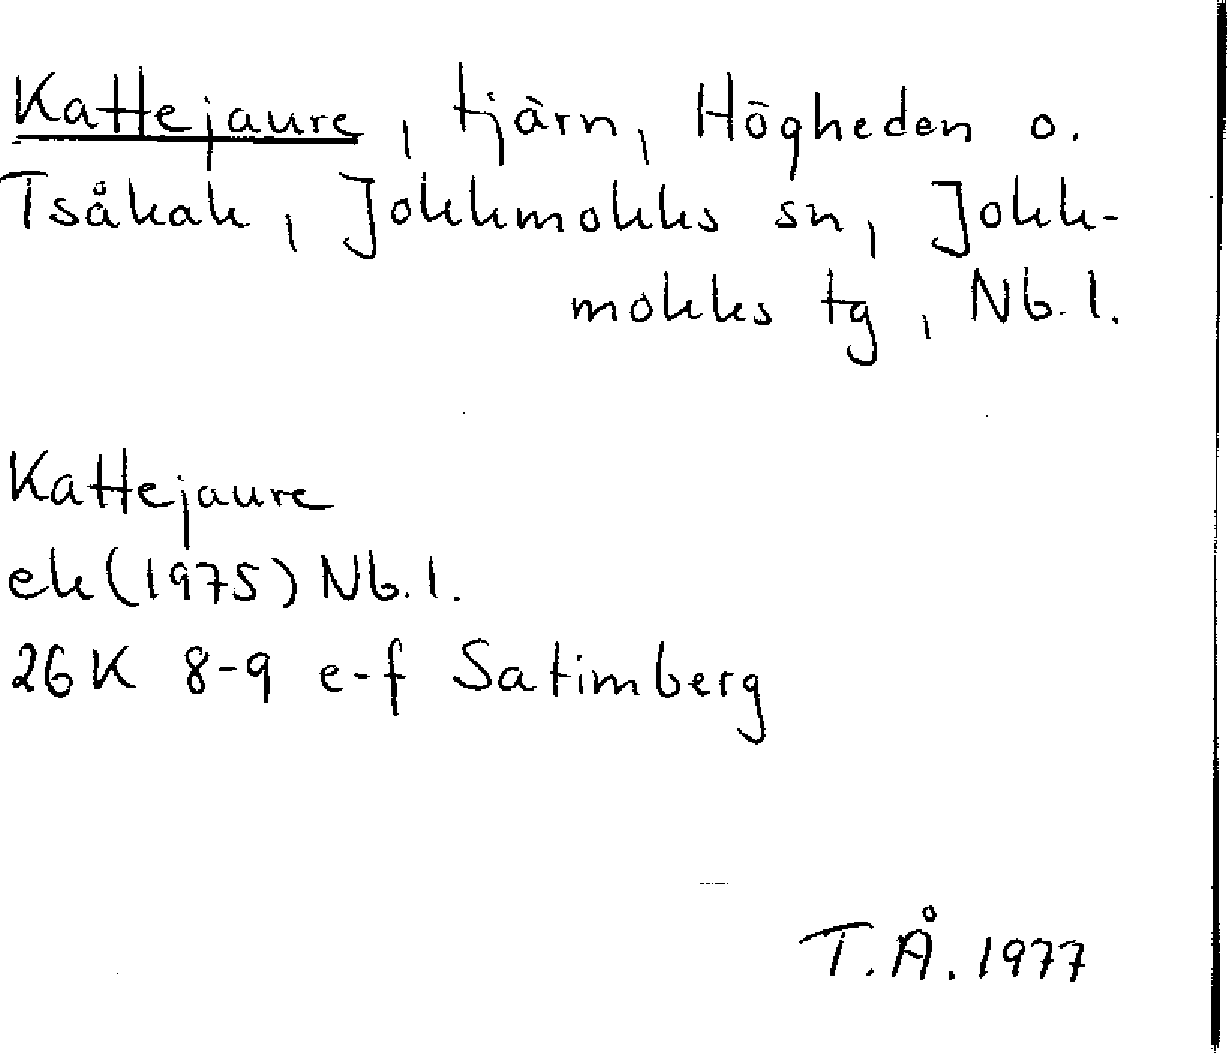 Kattejaure, tjärn, Högheden o.
Tsåkak, Jokkmokks sn, Jokk-
mokks tg, Nb. l.
Kattejaure
ek (1975) Nb. l.
26K 8-9 e-f Satimberg
T.Å. 1977